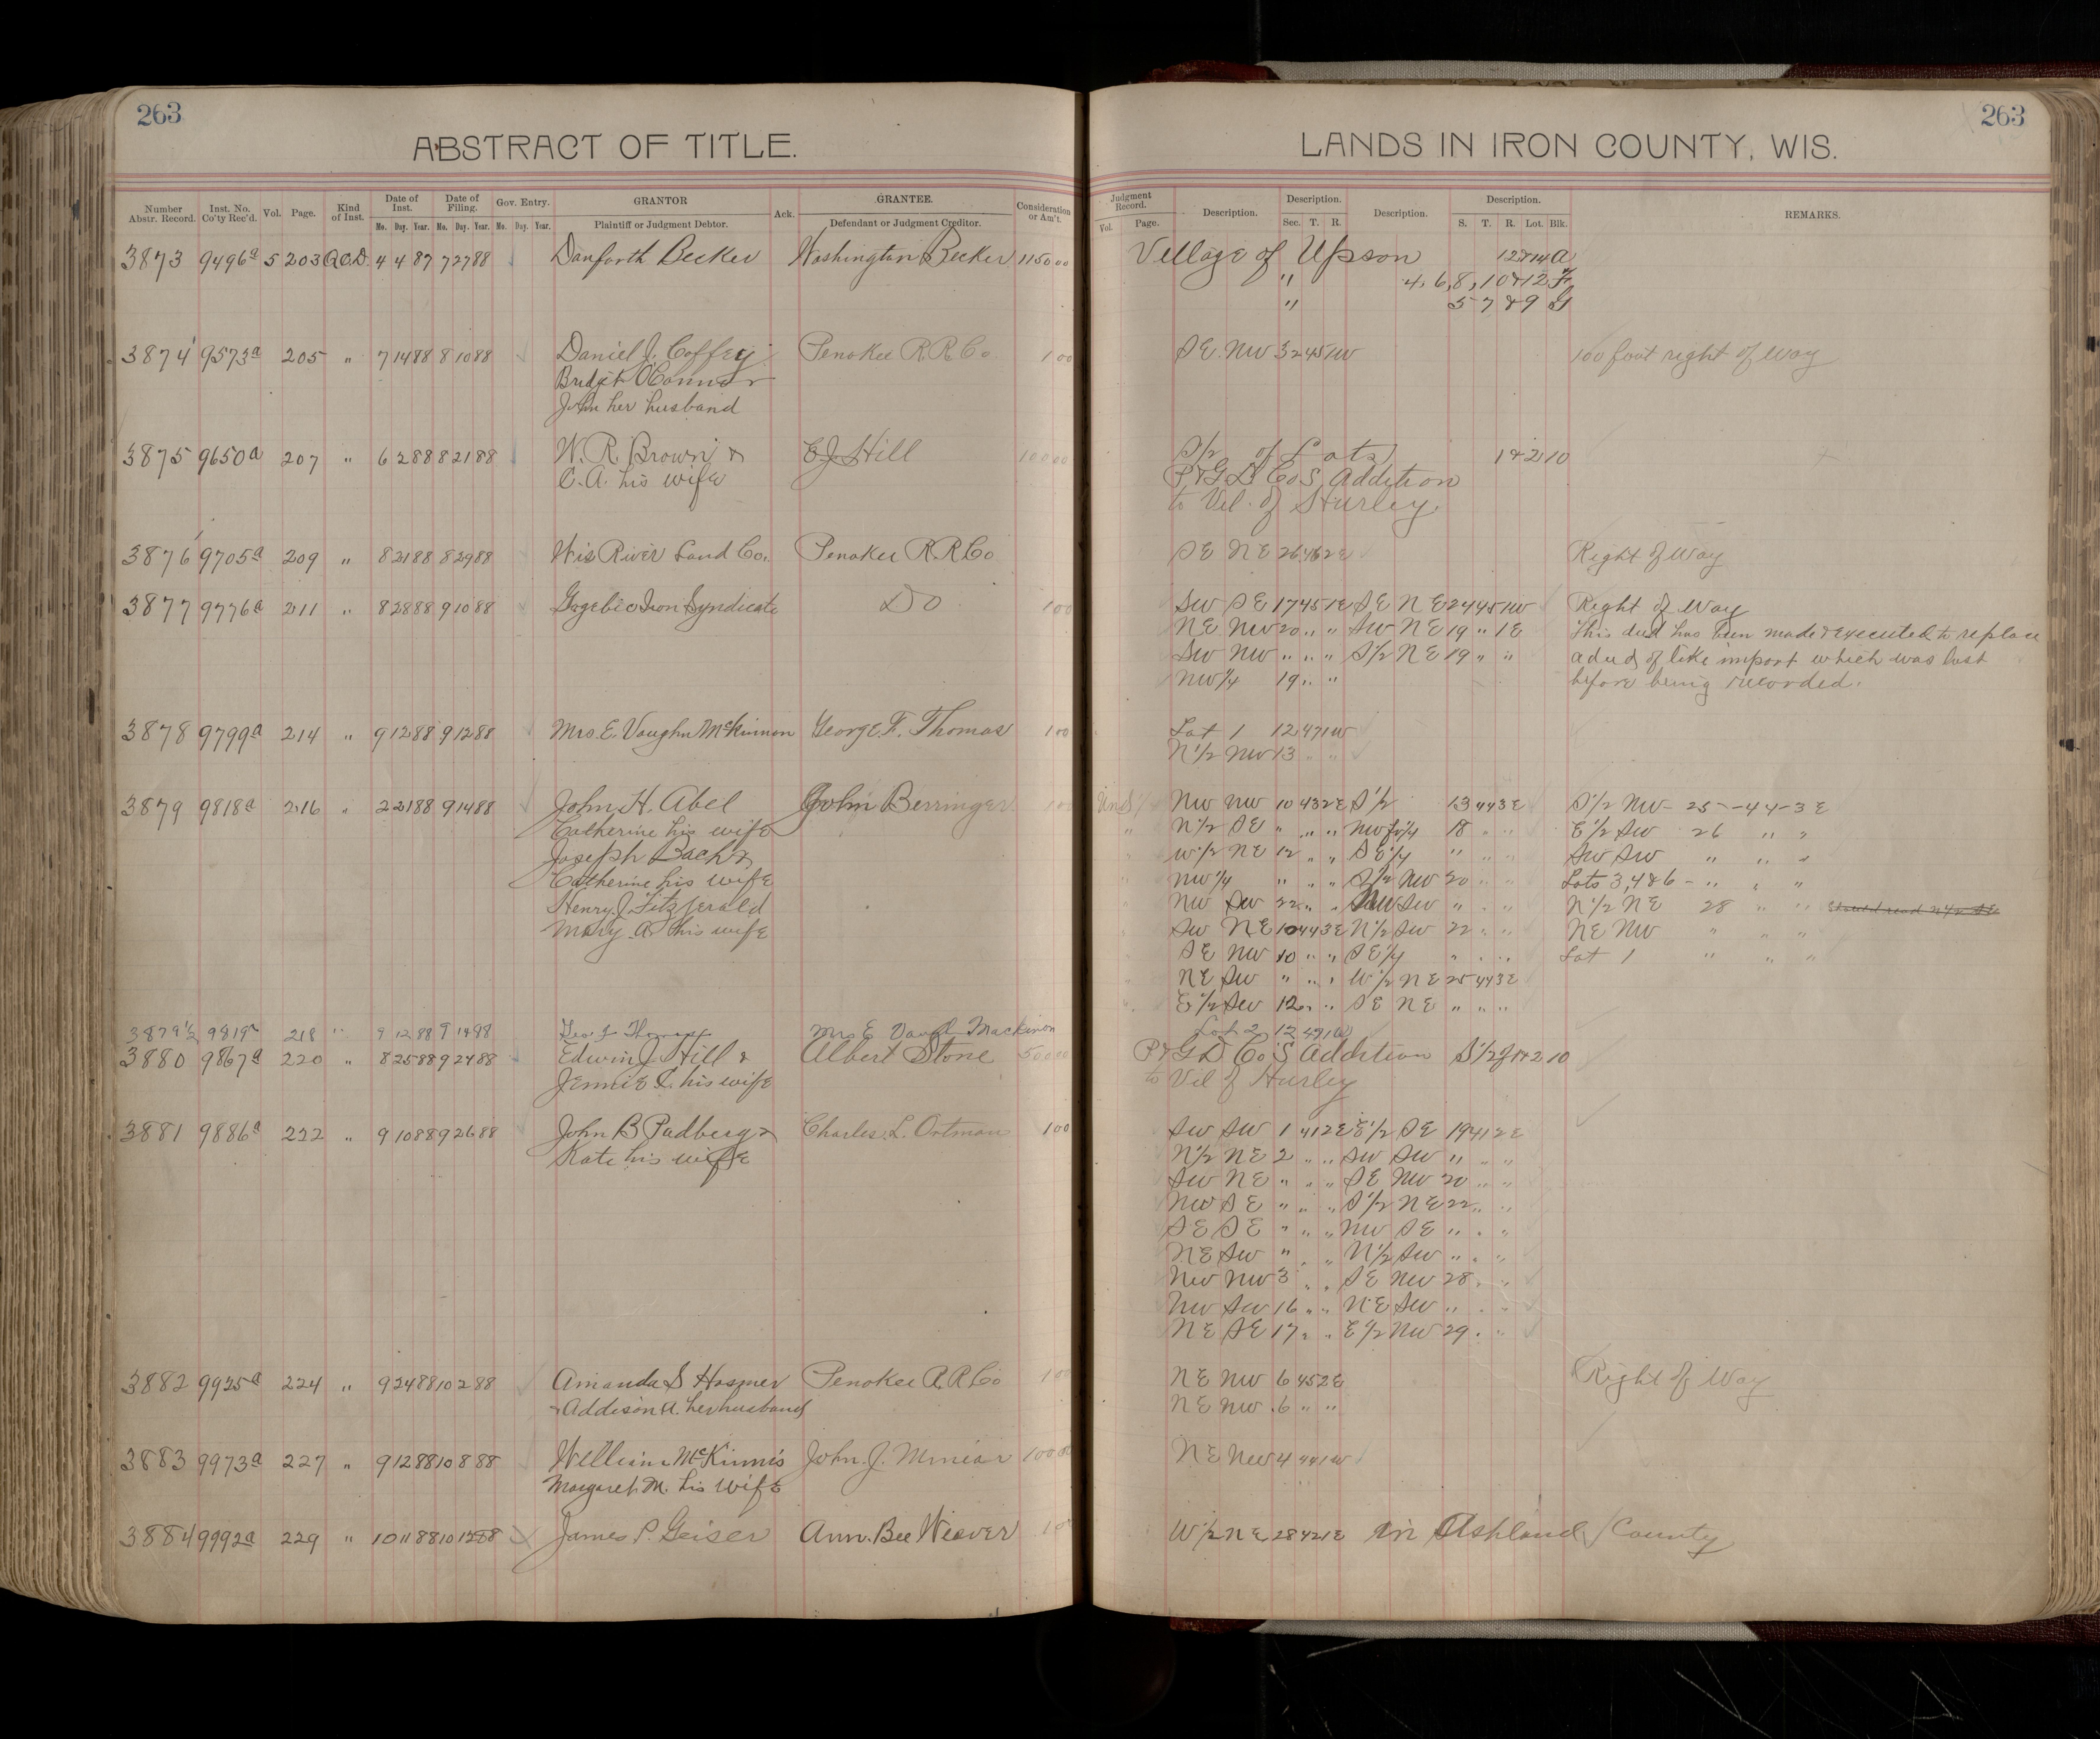 263
ABSTRACT OF TITLE.
Number Abstr. Record.
Inst. No. Co'ty Rec'd.
Vol.
Page.
Kind of Inst.
Date of Inst.
Date of Filing.
Gov. Entry.
GRANTOR
Ack.
GRANTEE.
Consideration or Am't.
Mo. Day. Year. Mo. Day. Year. Mo. Day. Year.
Plaintiff or Judgment Debtor.
Defendant or Judgment Creditor.
3873 9496a 5 203 Q.C.D. 4 4 87 7 27 88 Danforth Becker Washington Becker 1150 00
3874 9573a 205 " 7 14 88 8 10 88 Daniel J. Coffey Penokee R.R. Co. 1 00
Bridget O'Connor
John her husband
3875 9650a 207 " 6 2 88 8 21 88 W. R. Brown & E J Hill 100 00
C. A. his wife
3876 9705a 209 " 8 21 88 8 29 88 Wis River Land Co. Penokee R.R. Co
3877 9776a 211 " 8 28 88 9 10 88 Gogebic Iron Syndicate Do 1 00
3878 9799a 214 " 9 12 88 9 12 88 Mrs. E. Vaughn McKinnon George F. Thomas 1 00
3879 9818a 216 " 2 21 88 9 14 88 John H. Abel John Berringer 1 00
Catherine his wife
Joseph Bach &
Catherine his wife
Henry J. Fitzgerald
Mary A. his wife
3879½ 9819a 218 " 9 12 88 9 14 88 Geo. F Thomas Mrs E Mackinon
3880 9867a 220 " 8 25 88 9 24 88 Edwin J. Hill & Albert Stone 500 00
Jennie C. his wife
3881 9886a 222 " 9 10 88 9 26 88 John B Padberg & Charles L. Ortman 1 00
Kate his wife
3882 9925a 224 " 9 24 88 10 2 88 Amanda S Hosmer Penokee R.R. Co 1 00
Addison A. her husband
3883 9973a 227 " 9 12 88 10 8 88 William McKinnis John. J. Miniar 100 00
Margaret M. his wife
3884 9992a 229 " 10 11 88 10 12 88 James P. Geiser Ann. Bee Weaver
263
LANDS IN IRON COUNTY, WIS.
Judgment Record.
Description.
Description.
Description.
Description.
REMARKS.
Vol. Page.
Sec. T. R.
S. T. R. Lot. Blk.
Village of Upson 12 & 14 A
" 4, 6, 8, 10 & 12 F
" 5 7 & 9 G
SE. NW 32 45 1W 100 foot right of way
S/2 of Lots 1 & 2 10
P & G D Co S Addition
to Vil. of Hurley
SE NE 26 46 2E Right of Way
SW SE 17 45 1E SE NE 24 45 1W Right of Way
NE NW 20 " " SW NE 19 " 1E This deed has been made & executed to replace
SW NW " " " S1/2 NE 19 " " a deed of like import which was lost
NW1/4 19 " " before being recorded.
Lot 1 12 47 1W
N1/2 NW 13 " "
NW NW 10 43 2E S1/2 13 44 3E S1/2 NW - 25 - 44 - 3E
N1/2 SE " " " NW fr 1/4 18 " " E1/2 SW 26 " "
W1/2 NE 12 " " SE1/4 " " " SW SW " " "
NW1/4 " " " S1/2 NW 20 " " Lots 3, 4 & 6 - " " "
NW SW 22 " " NW SW " " " N1/2 NE 28 " "
SW NE 10 44 3E N1/2 SW 22 " " NE NW " " "
SE NW 10 " " SE1/4 " " " Lot 1 " " "
NE SW " " " W1/2 NE 25 44 3E
E1/2 SW 12 " " SE NE " " "
Lot 2 12 47 1W
P & G D Co S Addition S1/2 of 1 & 2 10
to Vil of Hurley
SW SW 1 41 2E E1/2 SE 19 41 2E
N1/2 NE 2 " " SW SW " " "
SW NE " " " SE NW 20 " "
NW SE " " " S1/2 NE 22 " "
SE SE " " " NW SE " " "
NE SW " " " N1/2 SW " " "
NW NW 3 " " SE NW 28 " "
NW SW 16 " " NE SW " " "
NE SE 17 " " E1/2 NW 29 " "
NE NW 6 45 2E Right of Way
NE NW 6 " "
NE NW 4 44 1W
W1/2 NE 28 42 1E in Ashland County